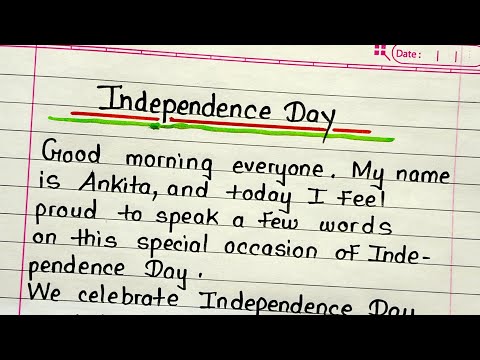 Date:
Independence Day
Good morning everyone. My name
is Ankita, and today I feel
proud to speak a few words
on this special occasion of Inde-
pendence Day.
We celebrate Independence Day